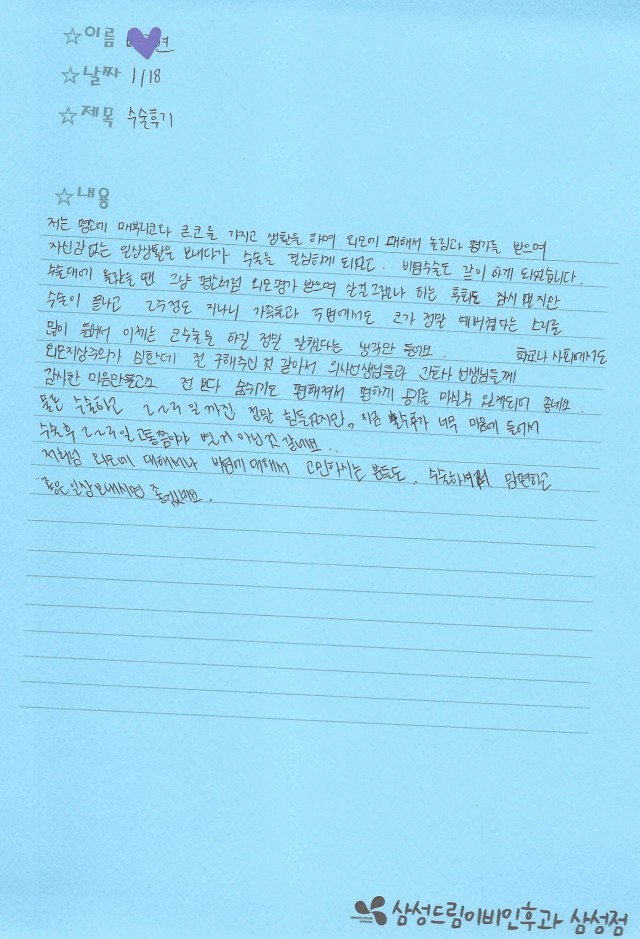 ☆이름 연
☆날짜 1/18
☆제목 수술후기
☆내용
저는 평소에 매부리코와 큰코를 가지고 생활을 하며 외모에 대해서 놀림과 평가를 받으며
자신감 없는 일상생활을 보내다가 수술을 결심하게 되었고. 비염수술도 같이 하게 되었습니다.
수술대에 올랐을 땐 그냥 평소처럼 외모평가 받으며 살걸 그랬나 하는 후회도 잠시 했지만
수술이 끝나고 2주정도 지나니 가족들과 주변에서도 코가 정말 예뻐졌다는 소리를
많이 들어서 이제는 코수술을 하길 정말 잘했다는 생각만 들어요. 학교나 사회에서도
외모지상주의가 심한데 전 구해주신 것 같아서 의사선생님들과 간호사 선생님들께
감사한 마음만들고요 전 보다 숨쉬기도 편해져서 편하게 공기를 마실수 있게되어 좋네요.
물론 수술하고 2~3일까진 정말 힘들었지만, 지금 결과가 너무 마음에 들어서
수술후 2~3일 고통쯤이야 별거 아닌것 같네요..
저처럼 외모에 대해서나 비염에 대해서 고민하시는 분들도, 수술하셔서 당당하고
좋은 일상보내시면 좋겠네요.
삼성드림이비인후과 삼성점